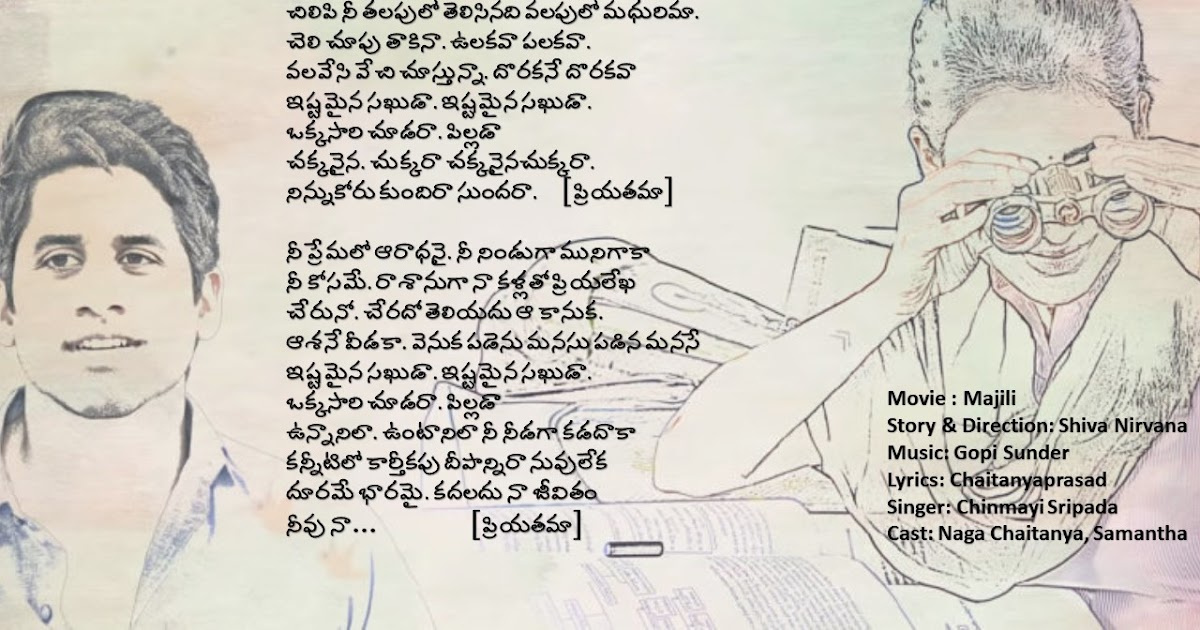 చిలిపి నీ తలపులో తెలిసినది వలపులో మధురిమా.
చెలి చూపు తాకినా. ఉలకవా పలకవా.
వలవేసి వేచి చూస్తున్నా. దొరకనే దొరకవా
ఇష్టమైన సఖుడా. ఇష్టమైన సఖుడా.
ఒక్కసారి చూడరా. పిల్లడా
చక్కనైన. చుక్కరా చక్కనైనచుక్కరా.
నిన్నుకోరు కుందిరా సుందరా. [ప్రియతమా]
నీ ప్రేమలో ఆరాధనై. నీ నిండుగా మునిగాకా
నీ కోసమే. రాశానుగా నా కళ్లతో ప్రియలేఖ
చేరునో. చేరదో తెలియదు ఆ కానుక.
ఆశనే వీడకా. వెనుక పడెను మనసు పడిన మనసే
ఇష్టమైన సఖుడా. ఇష్టమైన సఖుడా.
ఒక్కసారి చూడరా. పిల్లడా
ఉన్నానిలా. ఉంటానిలా నీ నీడగా కడదాకా
కన్నీటిలో కార్తీకపు దీపాన్నిరా నువులేక
దూరమే భారమై. కదలదు నా జీవితం
నీవు నా... [ప్రియతమా]
Movie : Majili
Story & Direction: Shiva Nirvana
Music: Gopi Sunder
Lyrics: Chaitanyaprasad
Singer: Chinmayi Sripada
Cast: Naga Chaitanya, Samantha